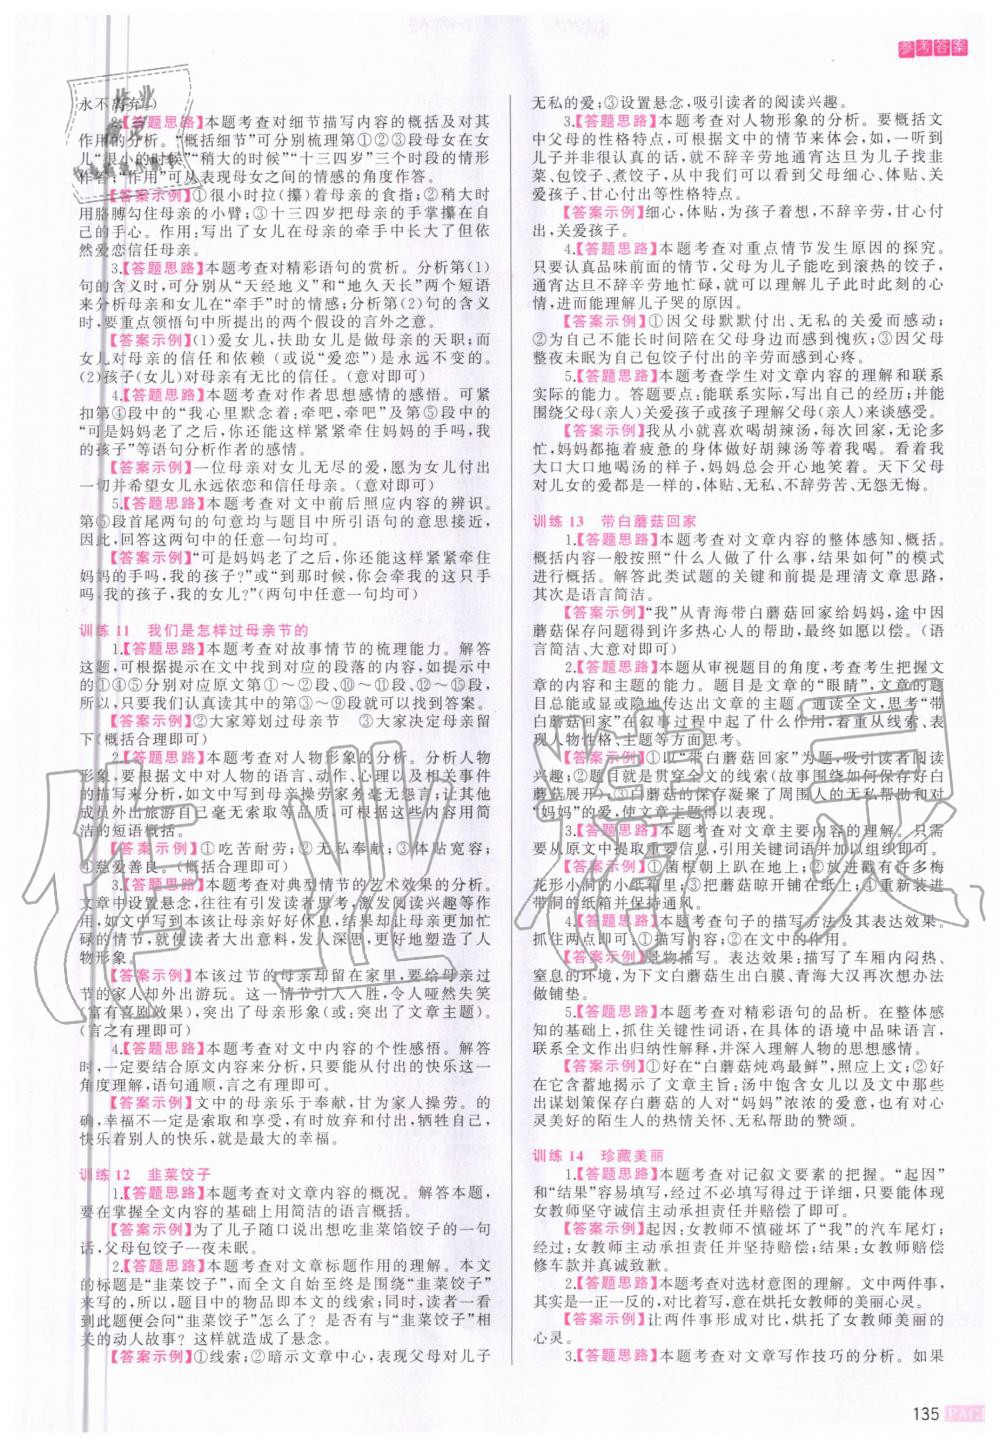 参考答案
永不离弃。)
2.【答题思路】本题考查对细节描写内容的概括及对其
作用的分析。“概括细节”可分别梳理第①②③段母女在女
儿“很小的时候”“稍大的时候”“十三四岁”三个时段的情形
作答;“作用”可从表现母女之间的情感的角度作答。
【答案示例】①很小时拉(攥)着母亲的食指;②稍大时
用胳膊勾住母亲的小臂;③十三四岁把母亲的手掌攥在自
己的手心。作用:写出了女儿在母亲的牵手中长大了但依
然爱恋信任母亲。
3.【答题思路】本题考查对精彩语句的赏析。分析第(1)
句的含义时,可分别从“天经地义”和“地久天长”两个短语
来分析母亲和女儿在“牵手”时的情感;分析第(2)句的含义
时,要重点领悟句中所提出的两个假设的言外之意。
【答案示例】(1)爱女儿,扶助女儿是母亲的天职;而
女儿对母亲的信任和依赖(或说“爱恋”)是永远不变的。
(2)孩子(女儿)对母亲有无比的信任。(意对即可)
4.【答题思路】本题考查对作者思想感情的感悟。可紧
扣第④段中的“我心里默念着:牵吧,牵吧”及第⑤段中的
“可是妈妈老了之后,你还能这样紧紧牵住妈妈的手吗,我
的孩子”等语句分析作者的感情。
【答案示例】一位母亲对女儿无尽的爱,愿为女儿付出
一切并希望女儿永远依恋和信任母亲。(意对即可)
5.【答题思路】本题考查对文中前后照应内容的辨识。
第⑤段首尾两句的句意均与题目中所引语句的意思接近,
因此,回答这两句中的任意一句均可。
【答案示例】“可是妈妈老了之后,你还能这样紧紧牵住
妈妈的手吗,我的孩子?”或“到那时候,你会牵我的这只手
吗,我的孩子,我的女儿?”(两句中任意一句均可)
训练 11 我们是怎样过母亲节的
1.【答题思路】本题考查对故事情节的梳理能力。解答
这题,可根据提示在文中找到对应的段落的内容,如提示中
的①④⑤分别对应原文第①～②段、⑩～⑪段、⑫～⑮段,
所以,只要我们认真读其中的第③～⑨段就可以找到答案。
【答案示例】②大家筹划过母亲节 ③大家决定母亲留
下(概括合理即可)
2.【答题思路】本题考查对人物形象的分析。分析人物
形象,要根据文中对人物的语言、动作、心理以及相关事件
的描写来分析,如文中写到母亲操劳家务毫无怨言;让其他
成员外出旅游自己毫无索取等品质,可根据这些内容用简
洁的短语概括。
【答案示例】①吃苦耐劳;②无私奉献;③体贴宽容;
④慈爱善良。(概括合理即可)
3.【答题思路】本题考查对典型情节的艺术效果的分析。
文章中设置悬念,往往有引发读者思考,激发阅读兴趣等作
用,如文中写到本该让母亲好好休息,结果却让母亲更加忙
碌的情节,就使读者大出意料,发人深思,更好地塑造了人
物形象。
【答案示例】本该过节的母亲却留在家里,要给母亲过
节的家人却外出游玩。这一情节引人入胜,令人哑然失笑
(富有喜剧效果),突出了母亲形象(或:突出了文章主题)。
(言之有理即可)
4.【答题思路】本题考查对文中内容的个性感悟。解答
时,一定要结合原文内容来分析,只要能从付出的快乐这一
角度理解,语句通顺,言之有理即可。
【答案示例】文中的母亲乐于奉献,甘为家人操劳。的
确,幸福不一定是索取和享受,有时放弃和付出,牺牲自己,
快乐着别人的快乐,就是最大的幸福。
训练 12 韭菜饺子
1.【答题思路】本题考查对文章内容的概况。解答本题,
要在掌握全文内容的基础上用简洁的语言概括。
【答案示例】为了儿子随口说出想吃韭菜馅饺子的一句
话,父母包饺子一夜未眠。
2.【答题思路】本题考查对文章标题作用的理解。本文
的标题是“韭菜饺子”,而全文自始至终是围绕“韭菜饺子”
来写的,所以,题目中的物品即本文的线索;同时,读者一看
到此题便会问“韭菜饺子”怎么了?是否有与“韭菜饺子”相
关的动人故事?这样就造成了悬念。
【答案示例】①线索;②暗示文章中心,表现父母对儿子
无私的爱;③设置悬念,吸引读者的阅读兴趣。
3.【答题思路】本题考查对人物形象的分析。要概括文
中父母的性格特点,可根据文中的情节来体会,如,一听到
儿子并非很认真的话,就不辞辛劳地通宵达旦为儿子找韭
菜、包饺子、煮饺子,从中我们可以看到父母细心、体贴、关
爱孩子、甘心付出等性格特点。
【答案示例】细心,体贴,为孩子着想,不辞辛劳,甘心付
出,关爱孩子。
4.【答题思路】本题考查对重点情节发生原因的探究。
只要认真品味前面的情节,父母为儿子能吃到滚热的饺子,
通宵达旦、不辞辛劳地忙碌,就可以理解儿子此时此刻的心
情,进而能理解儿子哭的原因。
【答案示例】①因父母默默付出、无私的关爱而感动;
②为自己不能长时间陪在父母身边而感到愧疚;③因父母
整夜未眠为自己包饺子付出的辛劳而感到心疼。
5.【答题思路】本题考查学生对文章内容的理解和联系
实际的能力。答题要点:能联系实际,写出自己的经历;并能
围绕父母(亲人)关爱孩子或孩子理解父母(亲人)来谈感受。
【答案示例】我从小就喜欢喝胡辣汤,每次回家,无论多
忙,妈妈都拖着疲惫的身体做好胡辣汤等着我。看着我
大口大口地喝汤的样子,妈妈总会开心地笑着。天下父母
对儿女的爱都是一样的,体贴、无私、不辞劳苦、无怨无悔。
训练 13 带白蘑菇回家
1.【答题思路】本题考查对文章内容的整体感知、概括。
概括内容一般按照“什么人做了什么事,结果如何”的模式
进行概括。解答此类试题的关键和前提是理清文章思路,
其次是语言简洁。
【答案示例】“我”从青海带白蘑菇回家给妈妈,途中因
蘑菇保存问题得到许多热心人的帮助,最终如愿以偿。(语
言简洁、大意对即可)
2.【答题思路】本题从审视题目的角度,考查考生把握文
章的内容和主题的能力。题目是文章的“眼睛”,文章的题目
总能或显或隐地传达出文章的主题。通读全文,思考“带
白蘑菇回家”在叙事过程中起了什么作用,着重从线索、表
现人物性格、主题等方面思考。
【答案示例】①以“带白蘑菇回家”为题,吸引读者阅读
兴趣;②题目就是贯穿全文的线索(故事围绕如何保存好白
蘑菇展开);③白蘑菇的保存凝聚了周围人的无私帮助和对
“妈妈”的爱,使文章主题得以表现。
3.【答题思路】本题考查对文章主要内容的理解。只需
要从原文中提取重要信息,引用关键词语并加以组织即可。
【答案示例】①菌根朝上趴在地上;②放进戳有许多梅
花形小洞的小纸箱里;③把蘑菇晾开铺在纸上;④重新装进
带洞的纸箱并保持通风。
4.【答题思路】本题考查句子的描写方法及其表达效果。
抓住两点即可:①描写内容;②在文中的作用。
【答案示例】景物描写。表达效果:描写了车厢内闷热、
窒息的环境,为下文白蘑菇生出白膜、青海大汉再次想办法
做铺垫。
5.【答题思路】本题考查对精彩语句的品析。在整体感
知的基础上,抓住关键性词语,在具体的语境中品味语言,
联系全文作出归纳性解释,并深入理解人物的思想感情。
【答案示例】①好在“白蘑菇炖鸡最鲜”,照应上文;②好
在它含蓄地揭示了文章主旨:汤中饱含女儿以及文中那些
出谋划策保存白蘑菇的人对“妈妈”浓浓的爱意,也有对心
灵美好的陌生人的热情关怀、无私帮助的赞颂。
训练 14 珍藏美丽
1.【答题思路】本题考查对记叙文要素的把握。“起因”
和“结果”容易填写,经过最好不要填得过于详细,只要能体现
女教师坚守诚信主动承担责任并赔偿了即可。
【答案示例】起因:女教师不慎碰坏了“我”的汽车尾灯;
经过:女教师主动承担责任并赔偿;结果:女教师赔偿
修车款并真诚致歉。
2.【答题思路】本题考查对选材意图的理解。文中两件事,
其实是一正一反的,对比着写,意在烘托女教师的美丽心灵。
【答案示例】让两件事形成对比,烘托了女教师美丽的
心灵。
3.【答题思路】本题考查对文章写作技巧的分析。如果
135 PAGE
作业精灵